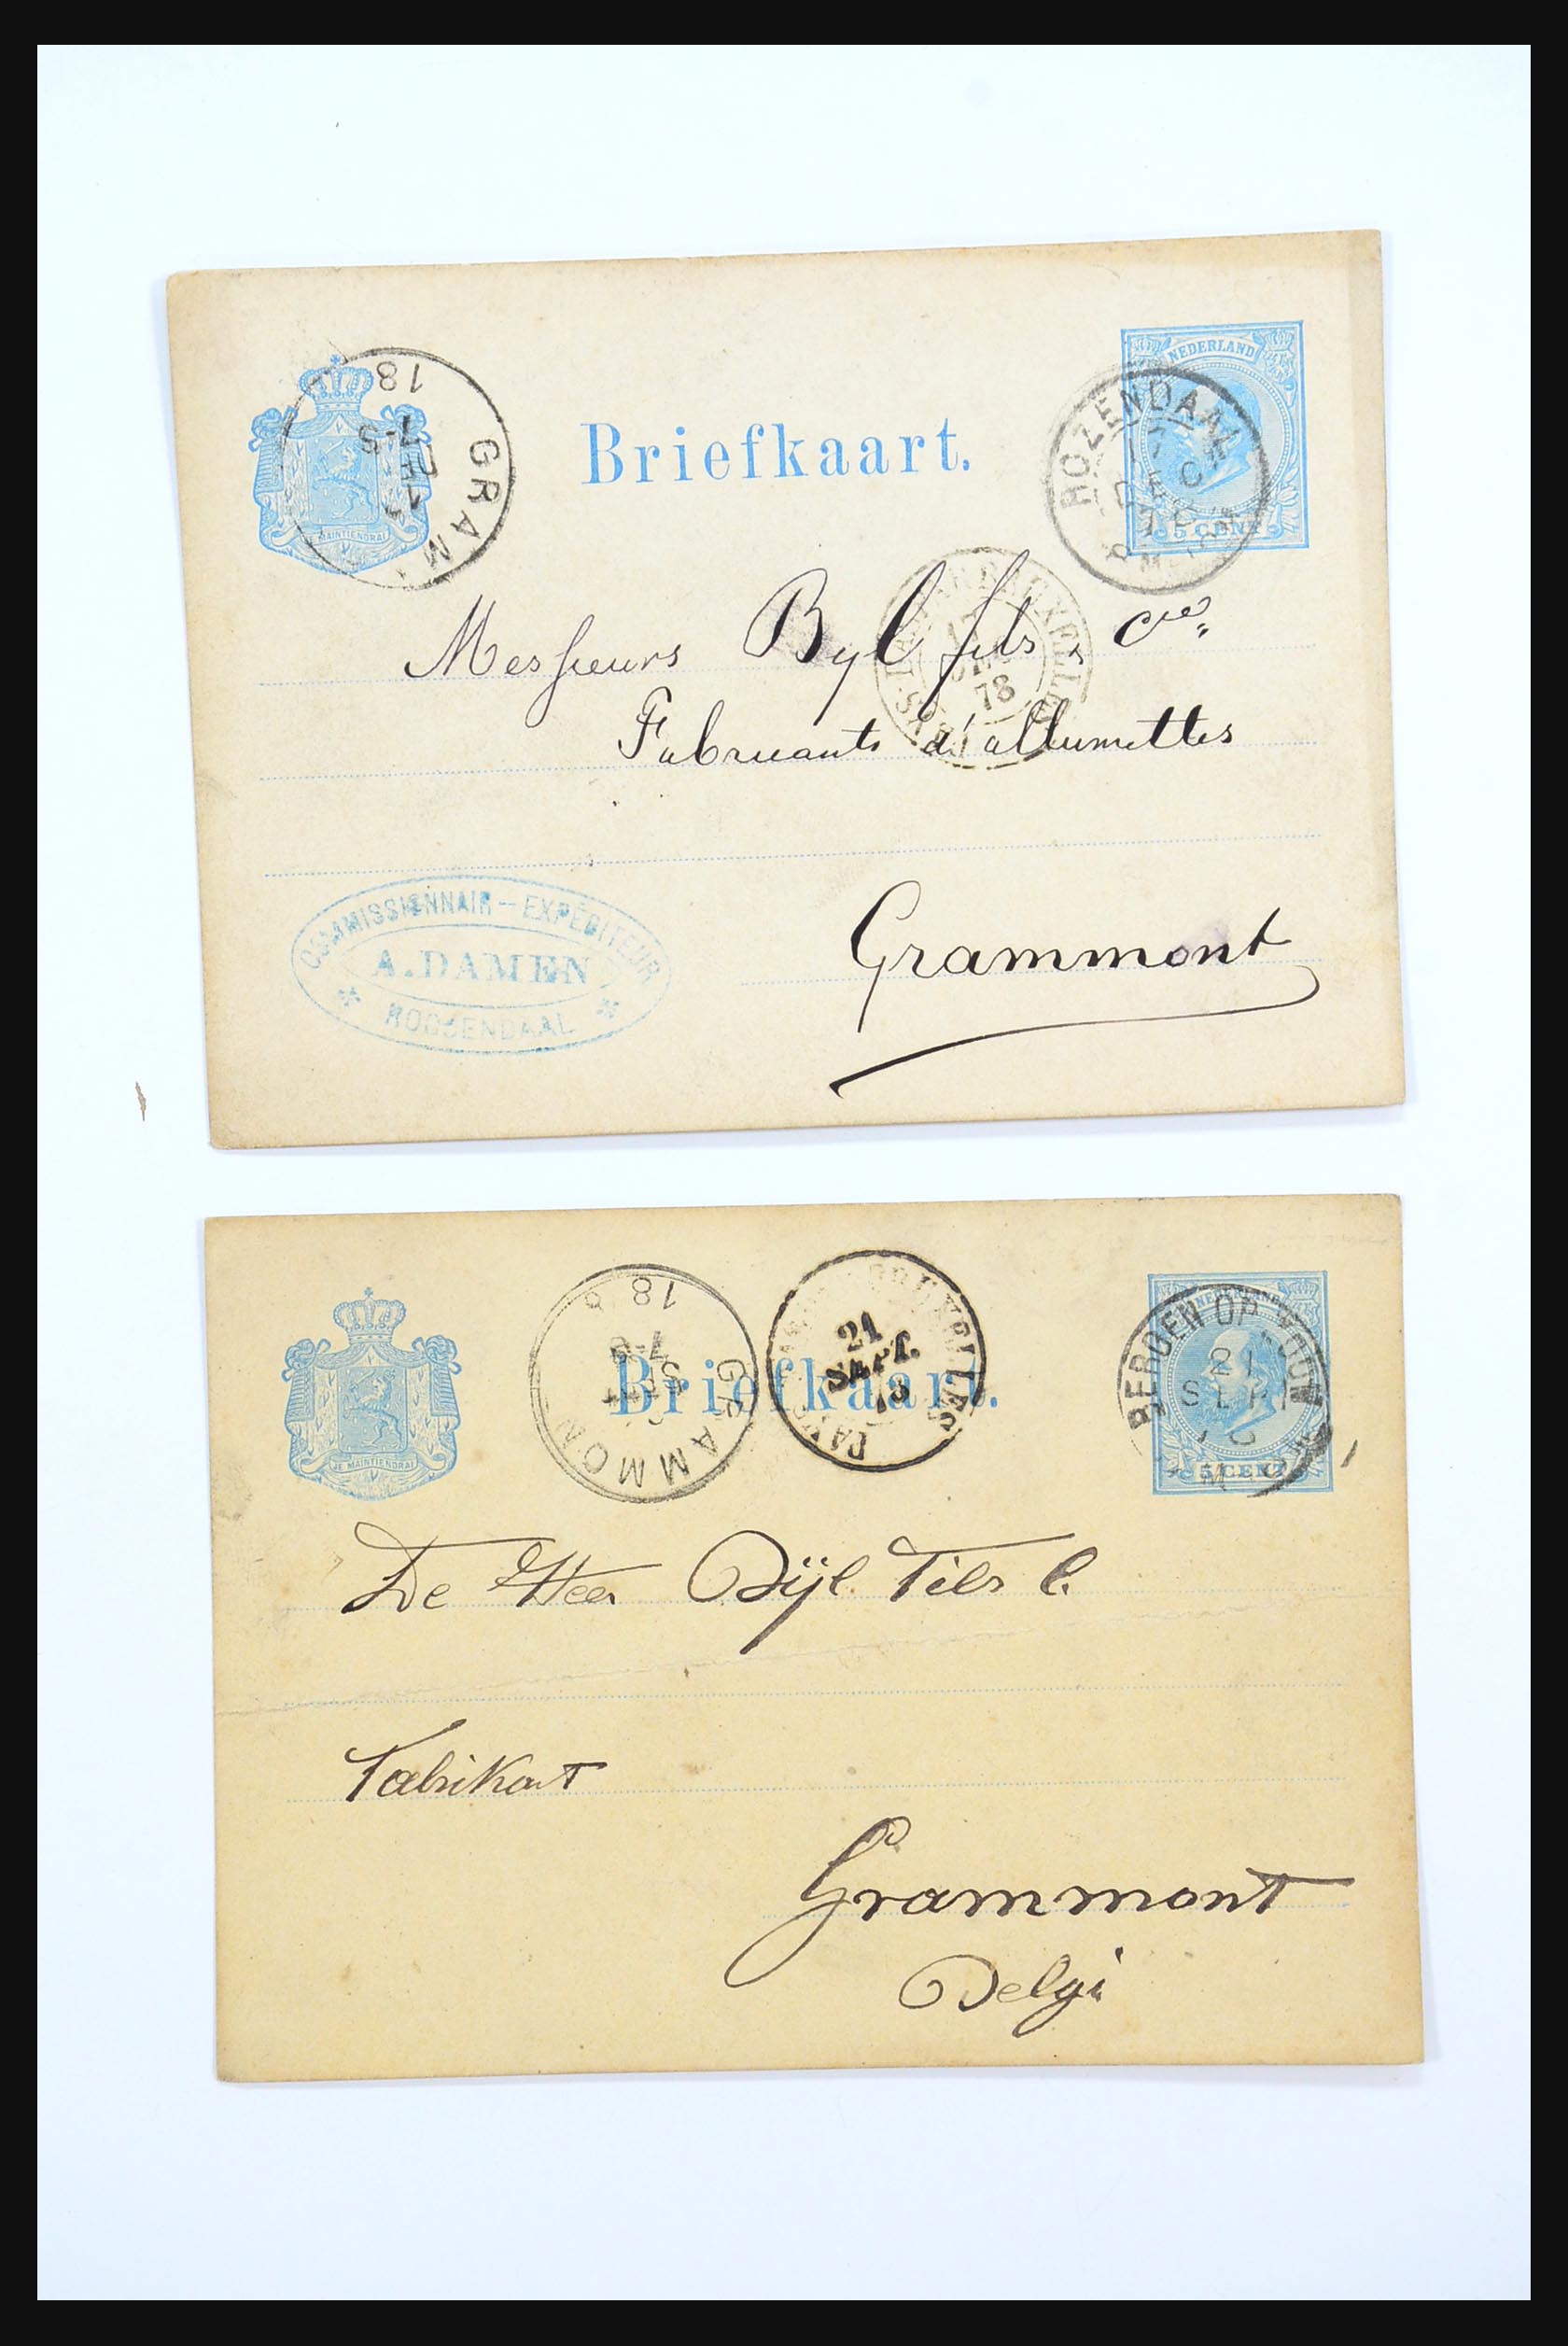 NEDERLAND
5 CENT
Briefkaart.
MAINTIENDRAI
18
GRAM
ROZENDAAL
78
Messieurs Byl fils & Cie
Fabricants d'allumettes
Grammont
COMMISSIENNAIR — EXPÉDITEUR
A. DAMEN
ROOSENDAAL
Briefkaart.
JE MAINTIENDRAI
18
GRAMMON
21
SEPT.
BERGEN OP ZOOM
21
SEP
5 CENT
De Heer Bijl Fils C.
Fabrikant
Grammont
Belgi